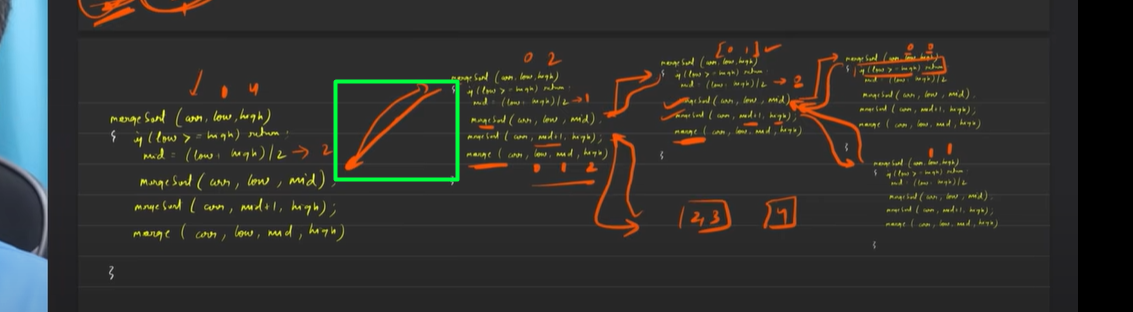 0 4
mergeSort (arr, low, high)
{
if (low >= high) return;
mid = (low + high)/2 → 2
mergeSort ( arr, low, mid)
mergeSort ( arr, mid+1, high);
merge ( arr, low, mid, high)
}
0 2
mergeSort (arr, low, high)
{
if (low >= high) return;
mid = (low + high)/2 → 1
mergeSort (arr, low, mid).
mergeSort (arr, mid+1, high);
merge ( arr, low, mid, high)
}
0 1 2
[2,3] [4]
[0 1] ✓
mergeSort (arr, low, high)
{
if (low >= high) return
mid = (low + high)/2
mergeSort (arr, low, mid)
mergeSort (arr, mid+1, high);
merge (arr, low, mid, high)
}
0 0
mergeSort (arr, low, high)
{
if (low >= high) return
mid = (low + high)/2
mergeSort (arr, low, mid).
mergeSort (arr, mid+1, high);
merge ( arr, low, mid, high)
}
1 1
mergeSort (arr, low, high)
if (low >= high) return
mid = (low + high)/2
mergeSort (arr, low, mid);
mergeSort (arr, mid+1, high);
merge ( arr, low, mid, high)
}